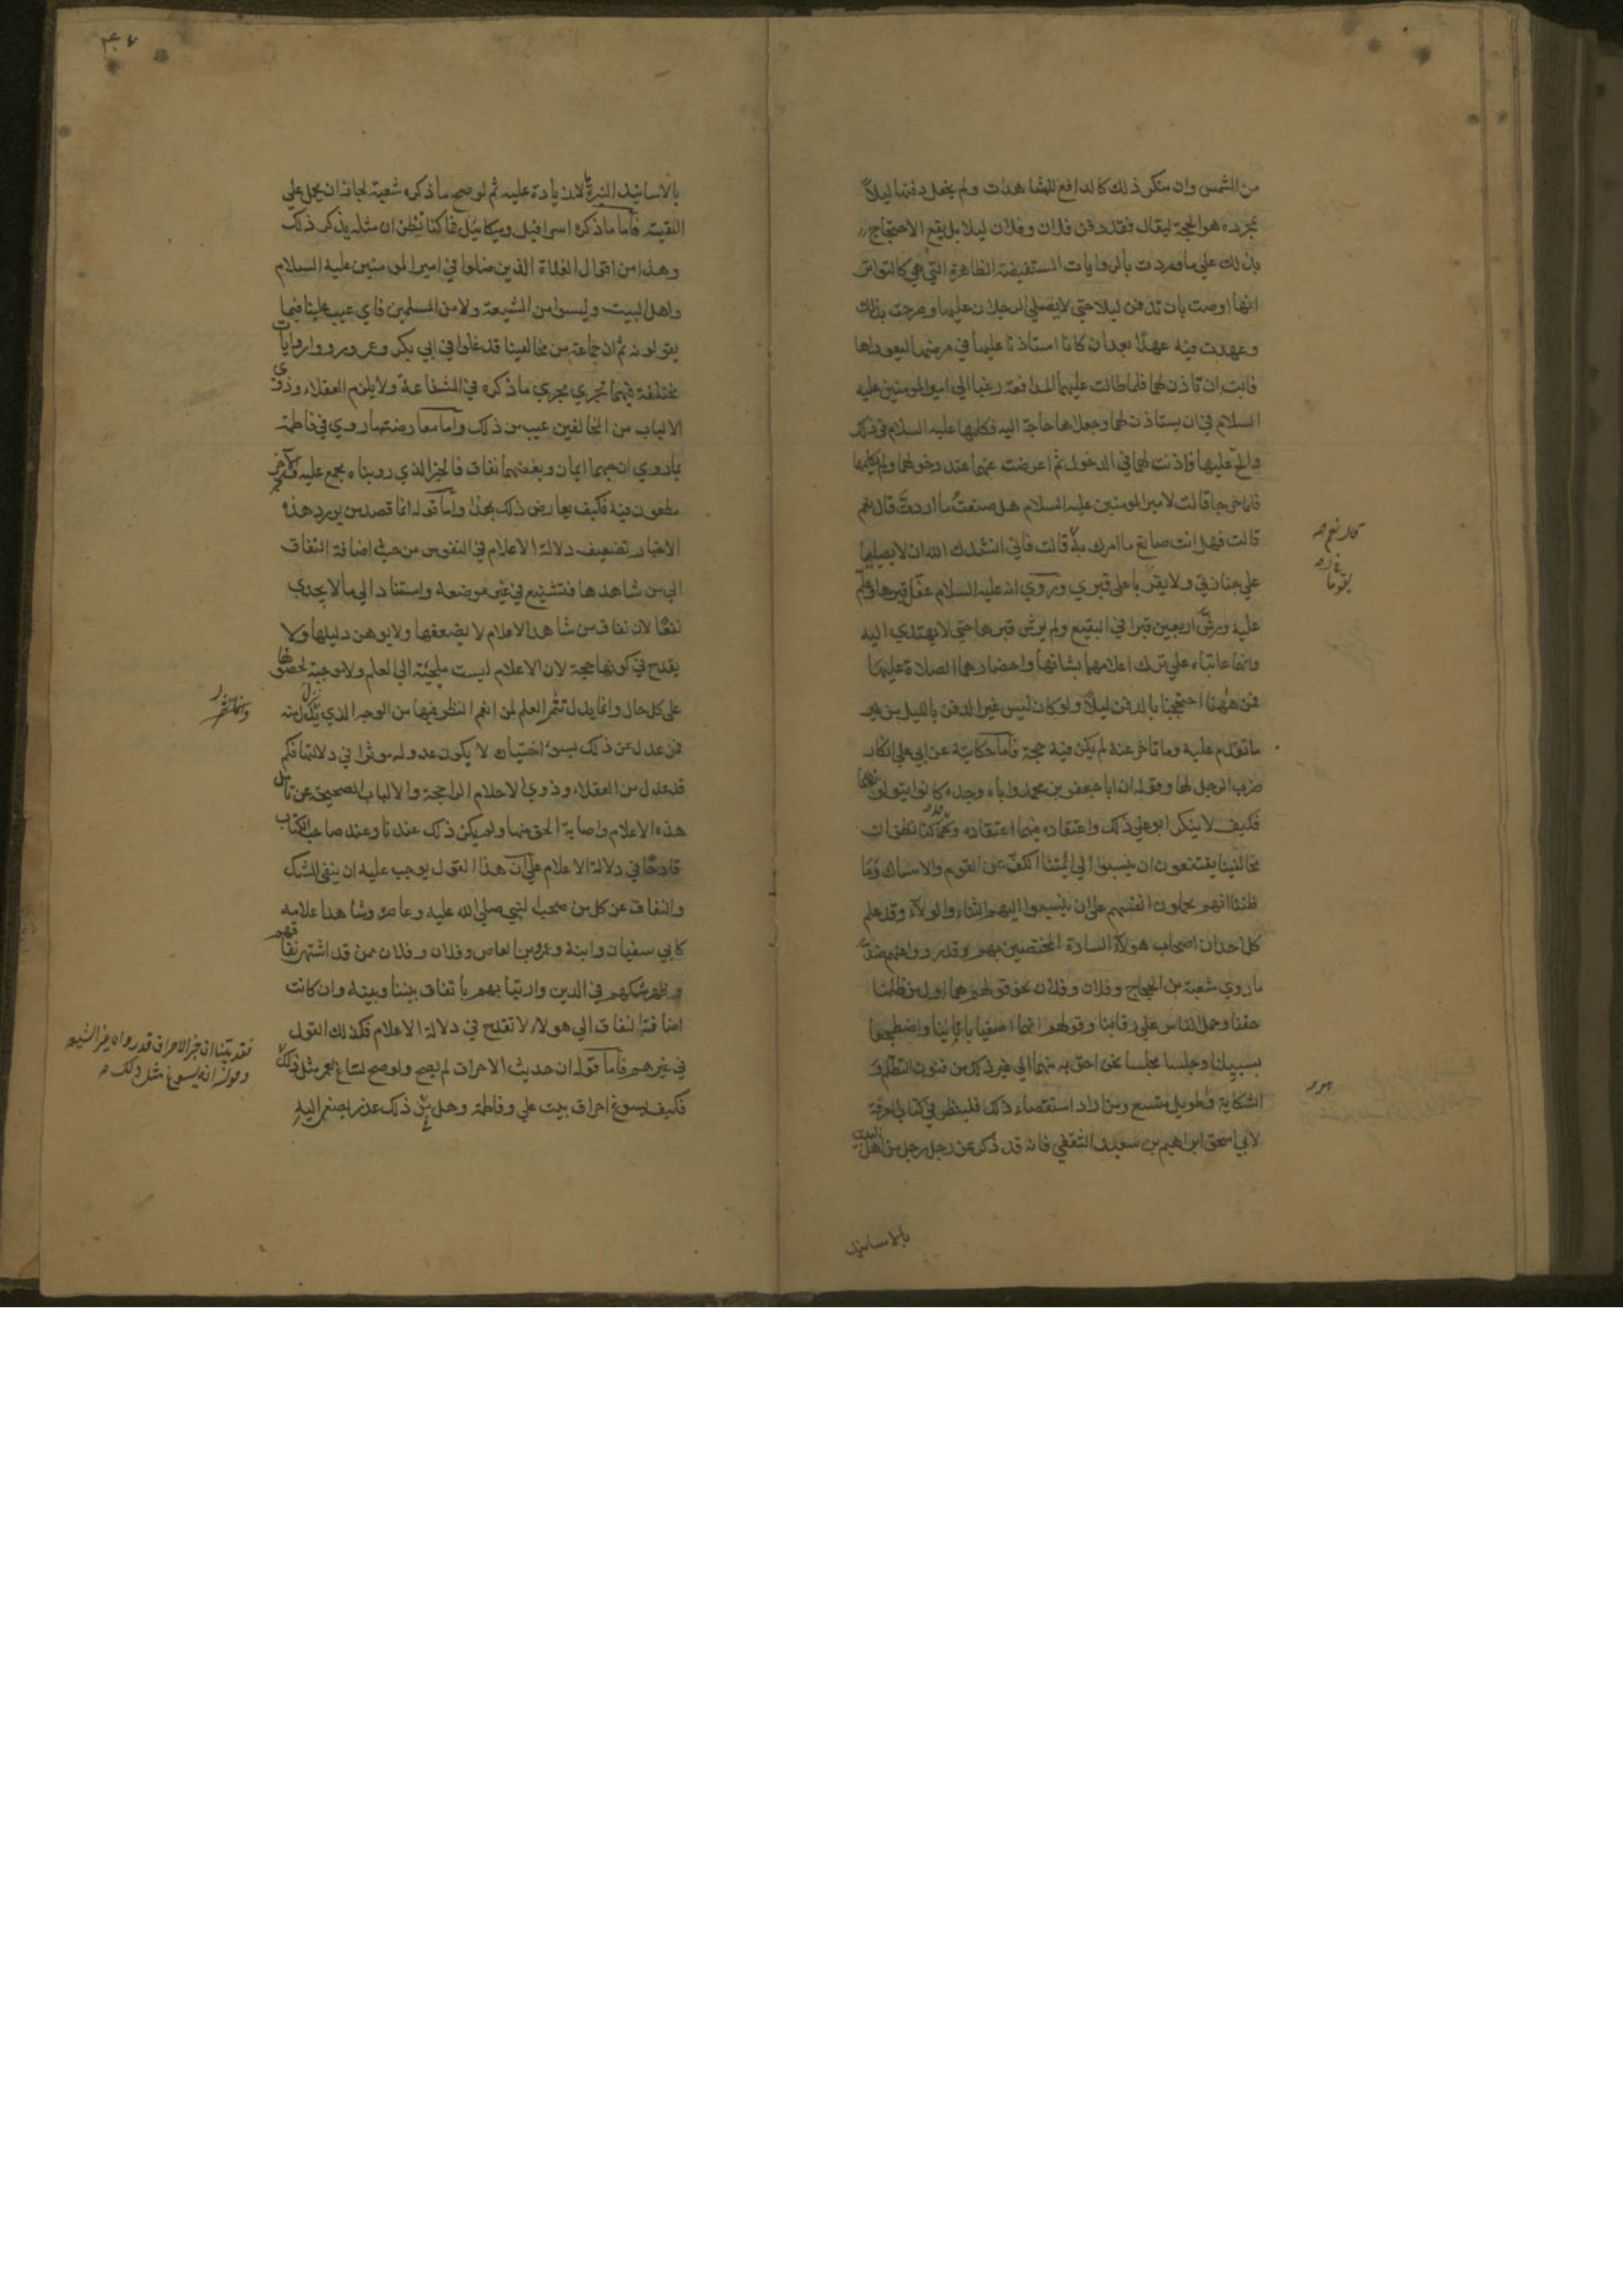 من الشمس وان منكر ذلك كالدافع للمشاهدات ولم يجعل دفنها ليلاً
بمجرده هو الحجة ليقال فقد دفن فلان وفلان ليلا بل يقع الاحتجاج
بذلك على ما وردت بالروايات المستفيضة الظاهرة التي هي كالتواتر
انها اوصت بان تدفن ليلا حتى لا يصلي الرجلان عليها وصرحت بذلك
وعهدت فيه عهدًا بعد ان كانا استاذنا عليها في مرضها ليعوداها
فابت ان تاذن لهما فلما طالت عليهما المدافعة رغبا الى امير المومنين عليه
السلام في ان يستاذن لهما وجعلاها حاجة اليه فكلمها عليه السلام في ذلك
والح عليها فاذنت لهما في الدخول ثم اعرضت عنهما عند دخولهما ولم تكلمهما
فلما خرجا قالت لامير المومنين عليه السلام هل صنعت ما اردت قال نعم
قالت فهل انت صانع ما امرك به قالت فاني انشدك الله ان لا يصليا
على جنازتي ولا يقوما على قبري وروي انه عليه السلام عفى قبرها وعلم
عليه ورش اربعين قبرا في البقيع ولم يرش قبرها حتى لا يهتدي اليه
وانهما عاتباه على ترك اعلامهما بشانها واحضارهما الصلاة عليها
فمن ههنا احتججنا بالدفن ليلاً ولو كان ليس غير الدفن بالليل من غير
ما تقدم عليه وما تاخر عنه لم يكن فيه حجة فاما حكايته عن ابي علي انكار
ضرب الرجل لها وقوله ان ابا جعفر بن محمد واباه وجده كانوا يتولونهما
فكيف لا ينكر ابو علي ذلك واعتقاده فيهما اعتقاده وقد كنا نظن ان
مخالفينا يقتنعون ان ينسبوا الى ائمتنا الكف عن القوم والامساك وما
ظننا انهم يحملون انفسهم على ان ينسبوا اليهم الثناء والولاء وقد علم
كل احد ان اصحاب هولاء السادة المختصين بهم قد رووا عنهم ضد
ما روي شعبة بن الحجاج وفلان وفلان وقولهم هما اول من ظلمنا
حقنا وحمل الناس على رقابنا وقولهم انهما اصفيا بانائنا واضطجعا
بسبيلنا وجلسا مجلسا نحن احق به منهما الى غير ذلك من فنون التظلم و
الشكاية وطويل متسع ومن اراد استقصاء ذلك فلينظر في كتاب المعرفة
لابي اسحق ابراهيم بن سعيد الثقفي فانه قد ذكر عن رجل رجل من اهل البيت
بالاسانيد
قال نعم صح
يقوما
بالاسانيد النيرة لا زيادة عليه ثم لو صح ما ذكره شعبة لجاز ان يحمل على
التقية فاما ما ذكره اسرافيل وميكائيل فما كنا نظن ان مثله يذكر ذلك
وهذا من اقوال الغلاة الذين ضلوا في امير المومنين عليه السلام
واهل البيت وليسوا من الشيعة ولا من المسلمين فاي عيب علينا فيما
يقولونه ثم ان جماعة من مخالفينا قد غلوا في ابي بكر وعمر ورووا روايات
مختلفة فيهما تجري مجرى ما ذكره في الشفاعة ولا يلزم العقلاء وذوي
الالباب من المخالفين عيب من ذلك واما معارضته ما روي في فاطمة
بما روي ان حبهما ايمان وبغضهما نفاق فالخبر الذي رويناه مجمع عليه وخبرهم الاخر
مطعون فيه فكيف يعارض ذلك بهذا واما قوله انما قصد من يورد هذه
الاخبار تضعيف دلالة الاعلام في النفوس من حيث اضافة النفاق
الى من شاهدها فتشنيع في غير موضعه واستناد الى ما لا يجدي
نفعًا لان نفاق من شاهد الاعلام لا يضعفها ولا يوهن دليلها ولا
يقدح في كونها حجة لان الاعلام ليست ملجئة الى العلم ولا موجبة لحصولها
على كل حال وانما يدل تثمر العلم لمن انعم النظر فيها من الوجه الذي يدل منه
فمن عدل عن ذلك بسوء اختياره لا يكون عدوله موثرا في دلالتها فكم
قد عدل من العقلاء وذوي الاحلام الراجحة والالباب الصحيحة عن تامل
هذه الاعلام واصابة الحق منها ولم يكن ذلك عندنا وعند صاحب الكتاب
قادحًا في دلالة الاعلام على ان هذا القول يوجب عليه ان ينفي الشك
والنفاق عن كل من صحب النبي صلى الله عليه وعاصره وشاهد اعلامه
كابي سفيان وابنه وعمرو بن العاص وفلان وفلان ممن قد اشتهر نفاقهم
وظهر شكهم في الدين وارتيابهم باتفاق بيننا وبينه وان كانت
اضافة النفاق الى هولاء لا تقدح في دلالة الاعلام فكذلك القول
في غيرهم فاما قوله ان حديث الاحراق لم يصح ولو صح لساغ لعمر مثل ذلك
فكيف يسوغ احراق بيت علي وفاطمة وهل في ذلك عذر يصغى اليه
فقد بينا ان خبر الاحراق قد رواه غير الشيعة
وقوله انه يسوغ مثل ذلك صح